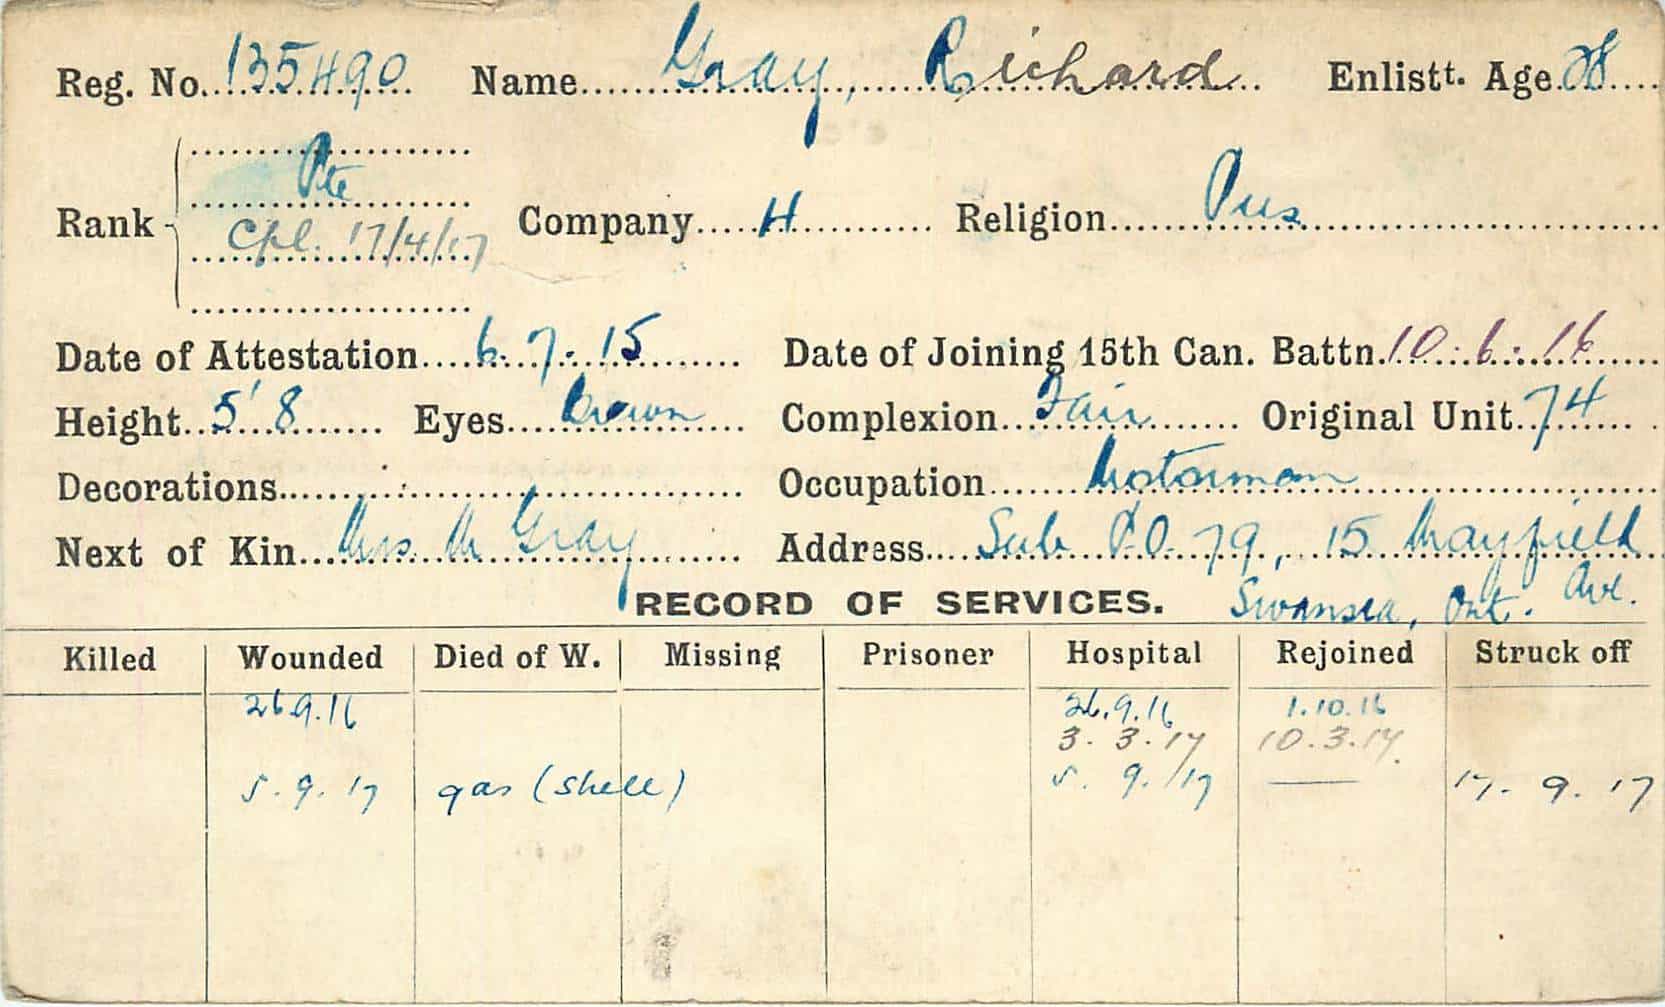 Reg. No. 135490 Name Gray, Richard Enlistt. Age 28
Pte
Rank Cpl. 17/4/17 Company H Religion Pres
Date of Attestation 6.7.15 Date of Joining 15th Can. Battn. 10.6.16
Height 5'8 Eyes brown Complexion Fair Original Unit 74
Decorations Occupation Motorman
Next of Kin Mrs. M Gray Address Sub P.O. 79, 15 Mayfield
RECORD OF SERVICES. Swansea, Ont. Ave.
Killed Wounded Died of W. Missing Prisoner Hospital Rejoined Struck off
26.9.16 26.9.16 1.10.16
3.3.17 10.3.17.
5.9.17 gas (shell) 5.9.17 — 17.9.17